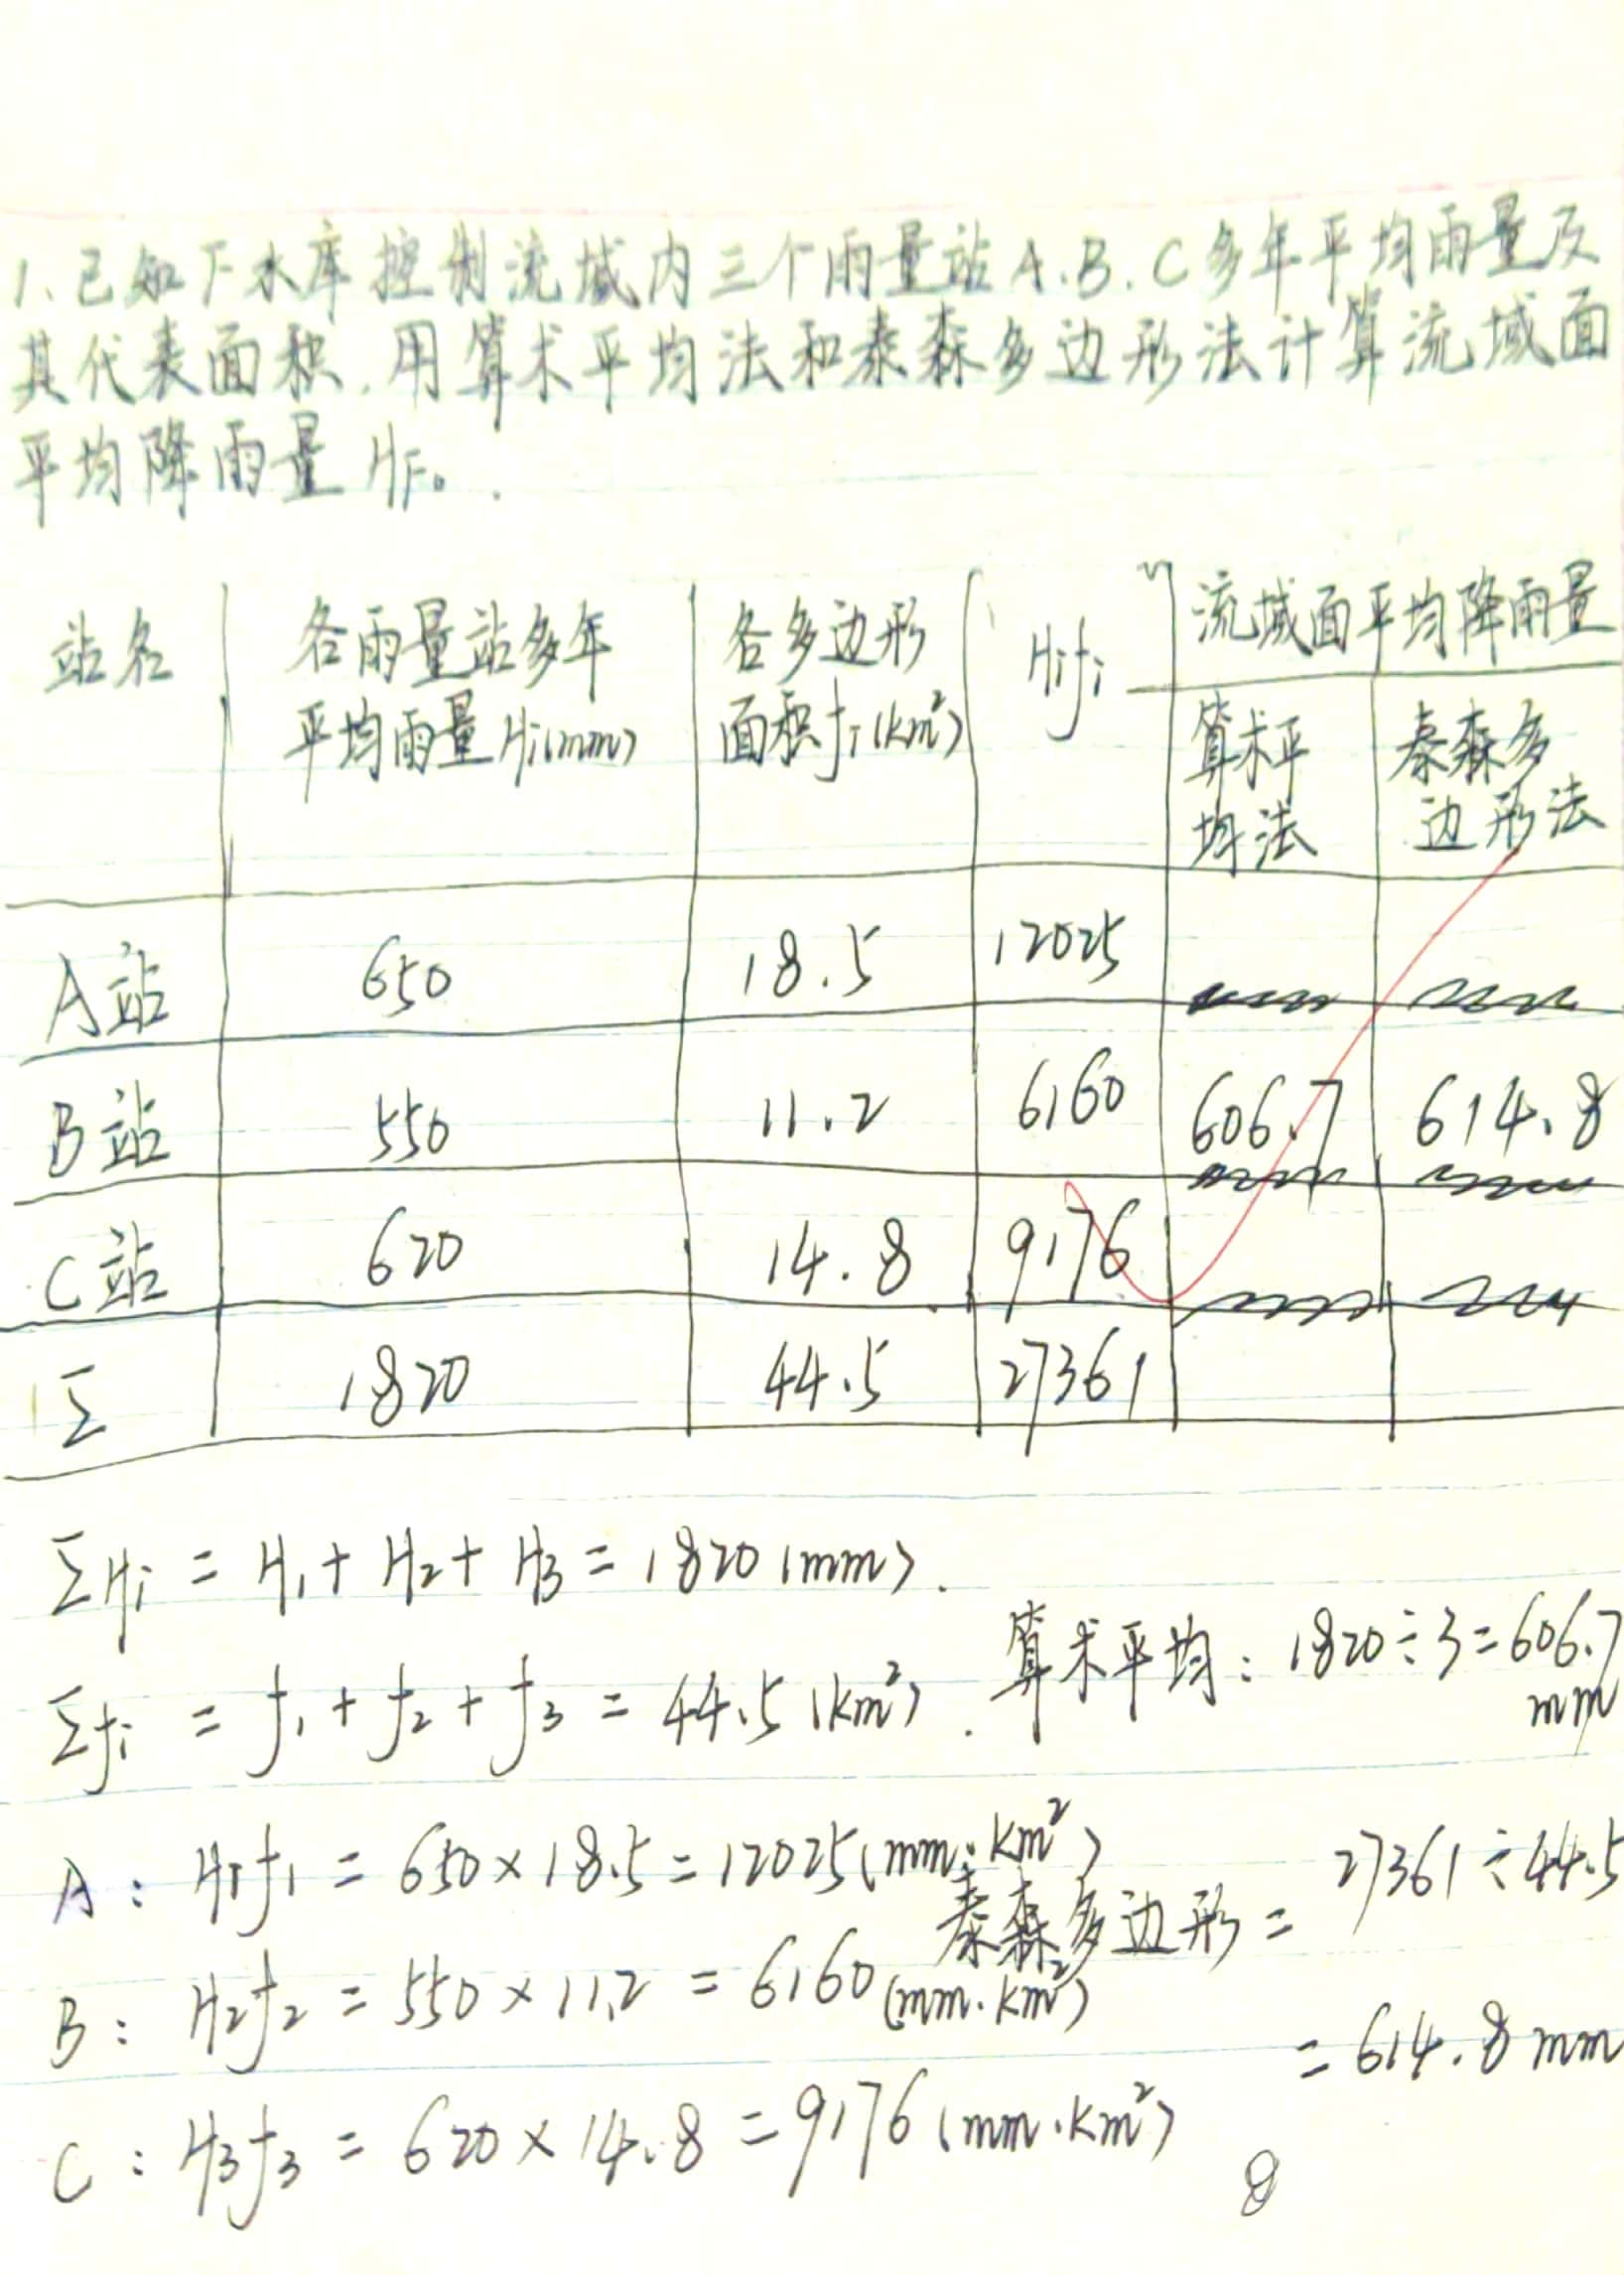 1、已知F水库控制流域内三个雨量站A.B.C多年平均雨量及
其代表面积.用算术平均法和泰森多边形法计算流域面
平均降雨量HF。
站名 各雨量站多年 各多边形 Hifi 流域面平均降雨量
平均雨量Hi(mm) 面积fi(km²) 算术平 泰森多
均法 边形法
A站 650 18.5 12025
B站 550 11.2 6160 606.7 614.8
C站 620 14.8 9176
Σ 1820 44.5 27361
ΣHi = H1+H2+H3 = 1820(mm).
Σfi = f1+f2+f3 = 44.5(km²).
算术平均：1820÷3=606.7
mm
A：H1f1 = 650×18.5=12025(mm.km²)
泰森多边形= 27361÷44.5
B：H2f2 = 550×11.2 = 6160(mm.km²)
= 614.8mm
C：H3f3 = 620×14.8 =9176(mm.km²)
8